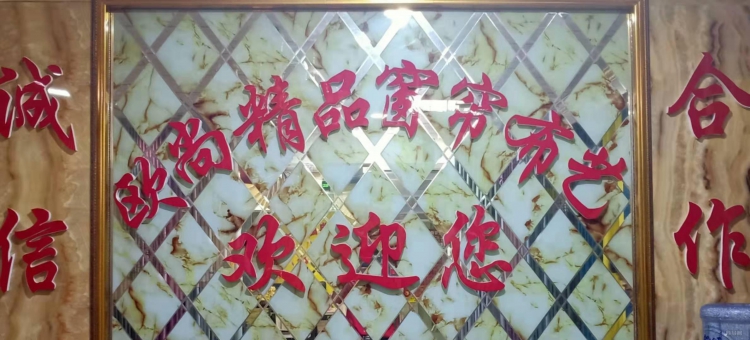 诚信
欧尚精品窗帘布艺
欢迎您
合作